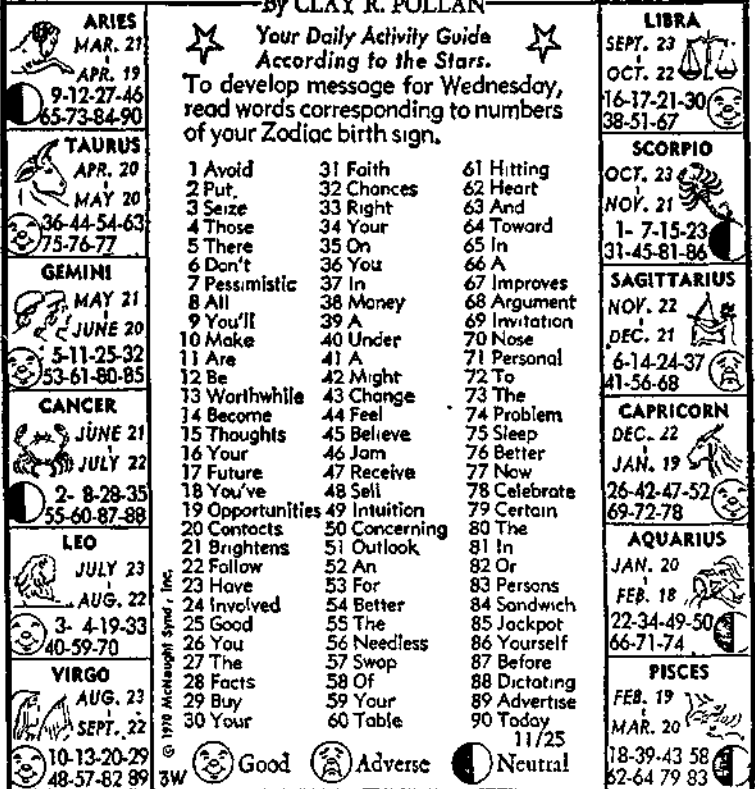 By CLAY R. POLLAN
Your Daily Activity Guide
According to the Stars.
To develop message for Wednesday,
read words corresponding to numbers
of your Zodiac birth sign.
ARIES
MAR. 21
APR. 19
9-12-27-46
65-73-84-90
TAURUS
APR. 20
MAY 20
36-44-54-63
75-76-77
GEMINI
MAY 21
JUNE 20
5-11-25-32
53-61-80-85
CANCER
JUNE 21
JULY 22
2- 8-28-35
55-60-87-88
LEO
JULY 23
AUG. 22
3- 4-19-33
40-59-70
VIRGO
AUG. 23
SEPT. 22
10-13-20-29
48-57-82 89
1 Avoid
2 Put
3 Seize
4 Those
5 There
6 Don't
7 Pessimistic
8 All
9 You'll
10 Make
11 Are
12 Be
13 Worthwhile
14 Become
15 Thoughts
16 Your
17 Future
18 You've
19 Opportunities
20 Contacts
21 Brightens
22 Follow
23 Have
24 Involved
25 Good
26 You
27 The
28 Facts
29 Buy
30 Your
31 Faith
32 Chances
33 Right
34 Your
35 On
36 You
37 In
38 Money
39 A
40 Under
41 A
42 Might
43 Change
44 Feel
45 Believe
46 Jam
47 Receive
48 Sell
49 Intuition
50 Concerning
51 Outlook
52 An
53 For
54 Better
55 The
56 Needless
57 Swop
58 Of
59 Your
60 Table
61 Hitting
62 Heart
63 And
64 Toward
65 In
66 A
67 Improves
68 Argument
69 Invitation
70 Nose
71 Personal
72 To
73 The
74 Problem
75 Sleep
76 Better
77 Now
78 Celebrate
79 Certain
80 The
81 In
82 Or
83 Persons
84 Sandwich
85 Jackpot
86 Yourself
87 Before
88 Dictating
89 Advertise
90 Today
11/25
© 1970 McNaught Synd., Inc.
3W
Good
Adverse
Neutral
LIBRA
SEPT. 23
OCT. 22
16-17-21-30
38-51-67
SCORPIO
OCT. 23
NOV. 21
1- 7-15-23
31-45-81-86
SAGITTARIUS
NOV. 22
DEC. 21
6-14-24-37
41-56-68
CAPRICORN
DEC. 22
JAN. 19
26-42-47-52
69-72-78
AQUARIUS
JAN. 20
FEB. 18
22-34-49-50
66-71-74
PISCES
FEB. 19
MAR. 20
18-39-43 58
62-64 79 83